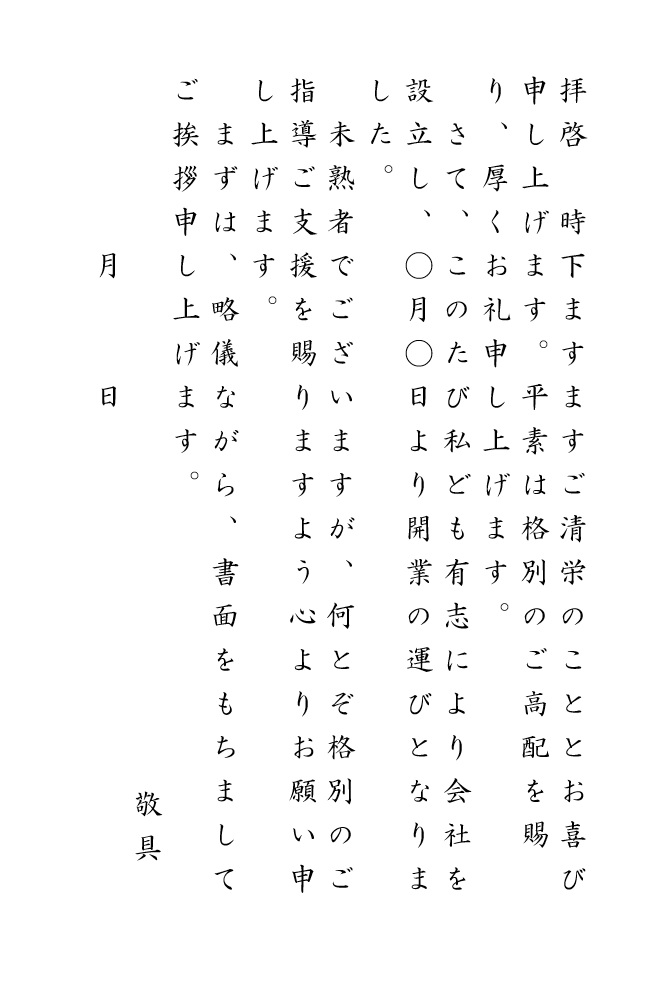 拝啓　時下ますますご清栄のこととお喜び
申し上げます。平素は格別のご高配を賜
り、厚くお礼申し上げます。
　さて、このたび私ども有志により会社を
設立し、〇月〇日より開業の運びとなりま
した。
　未熟者でございますが、何とぞ格別のご
指導ご支援を賜りますよう心よりお願い申
し上げます。
　まずは、略儀ながら、書面をもちまして
ご挨拶申し上げます。
敬具
月　　日